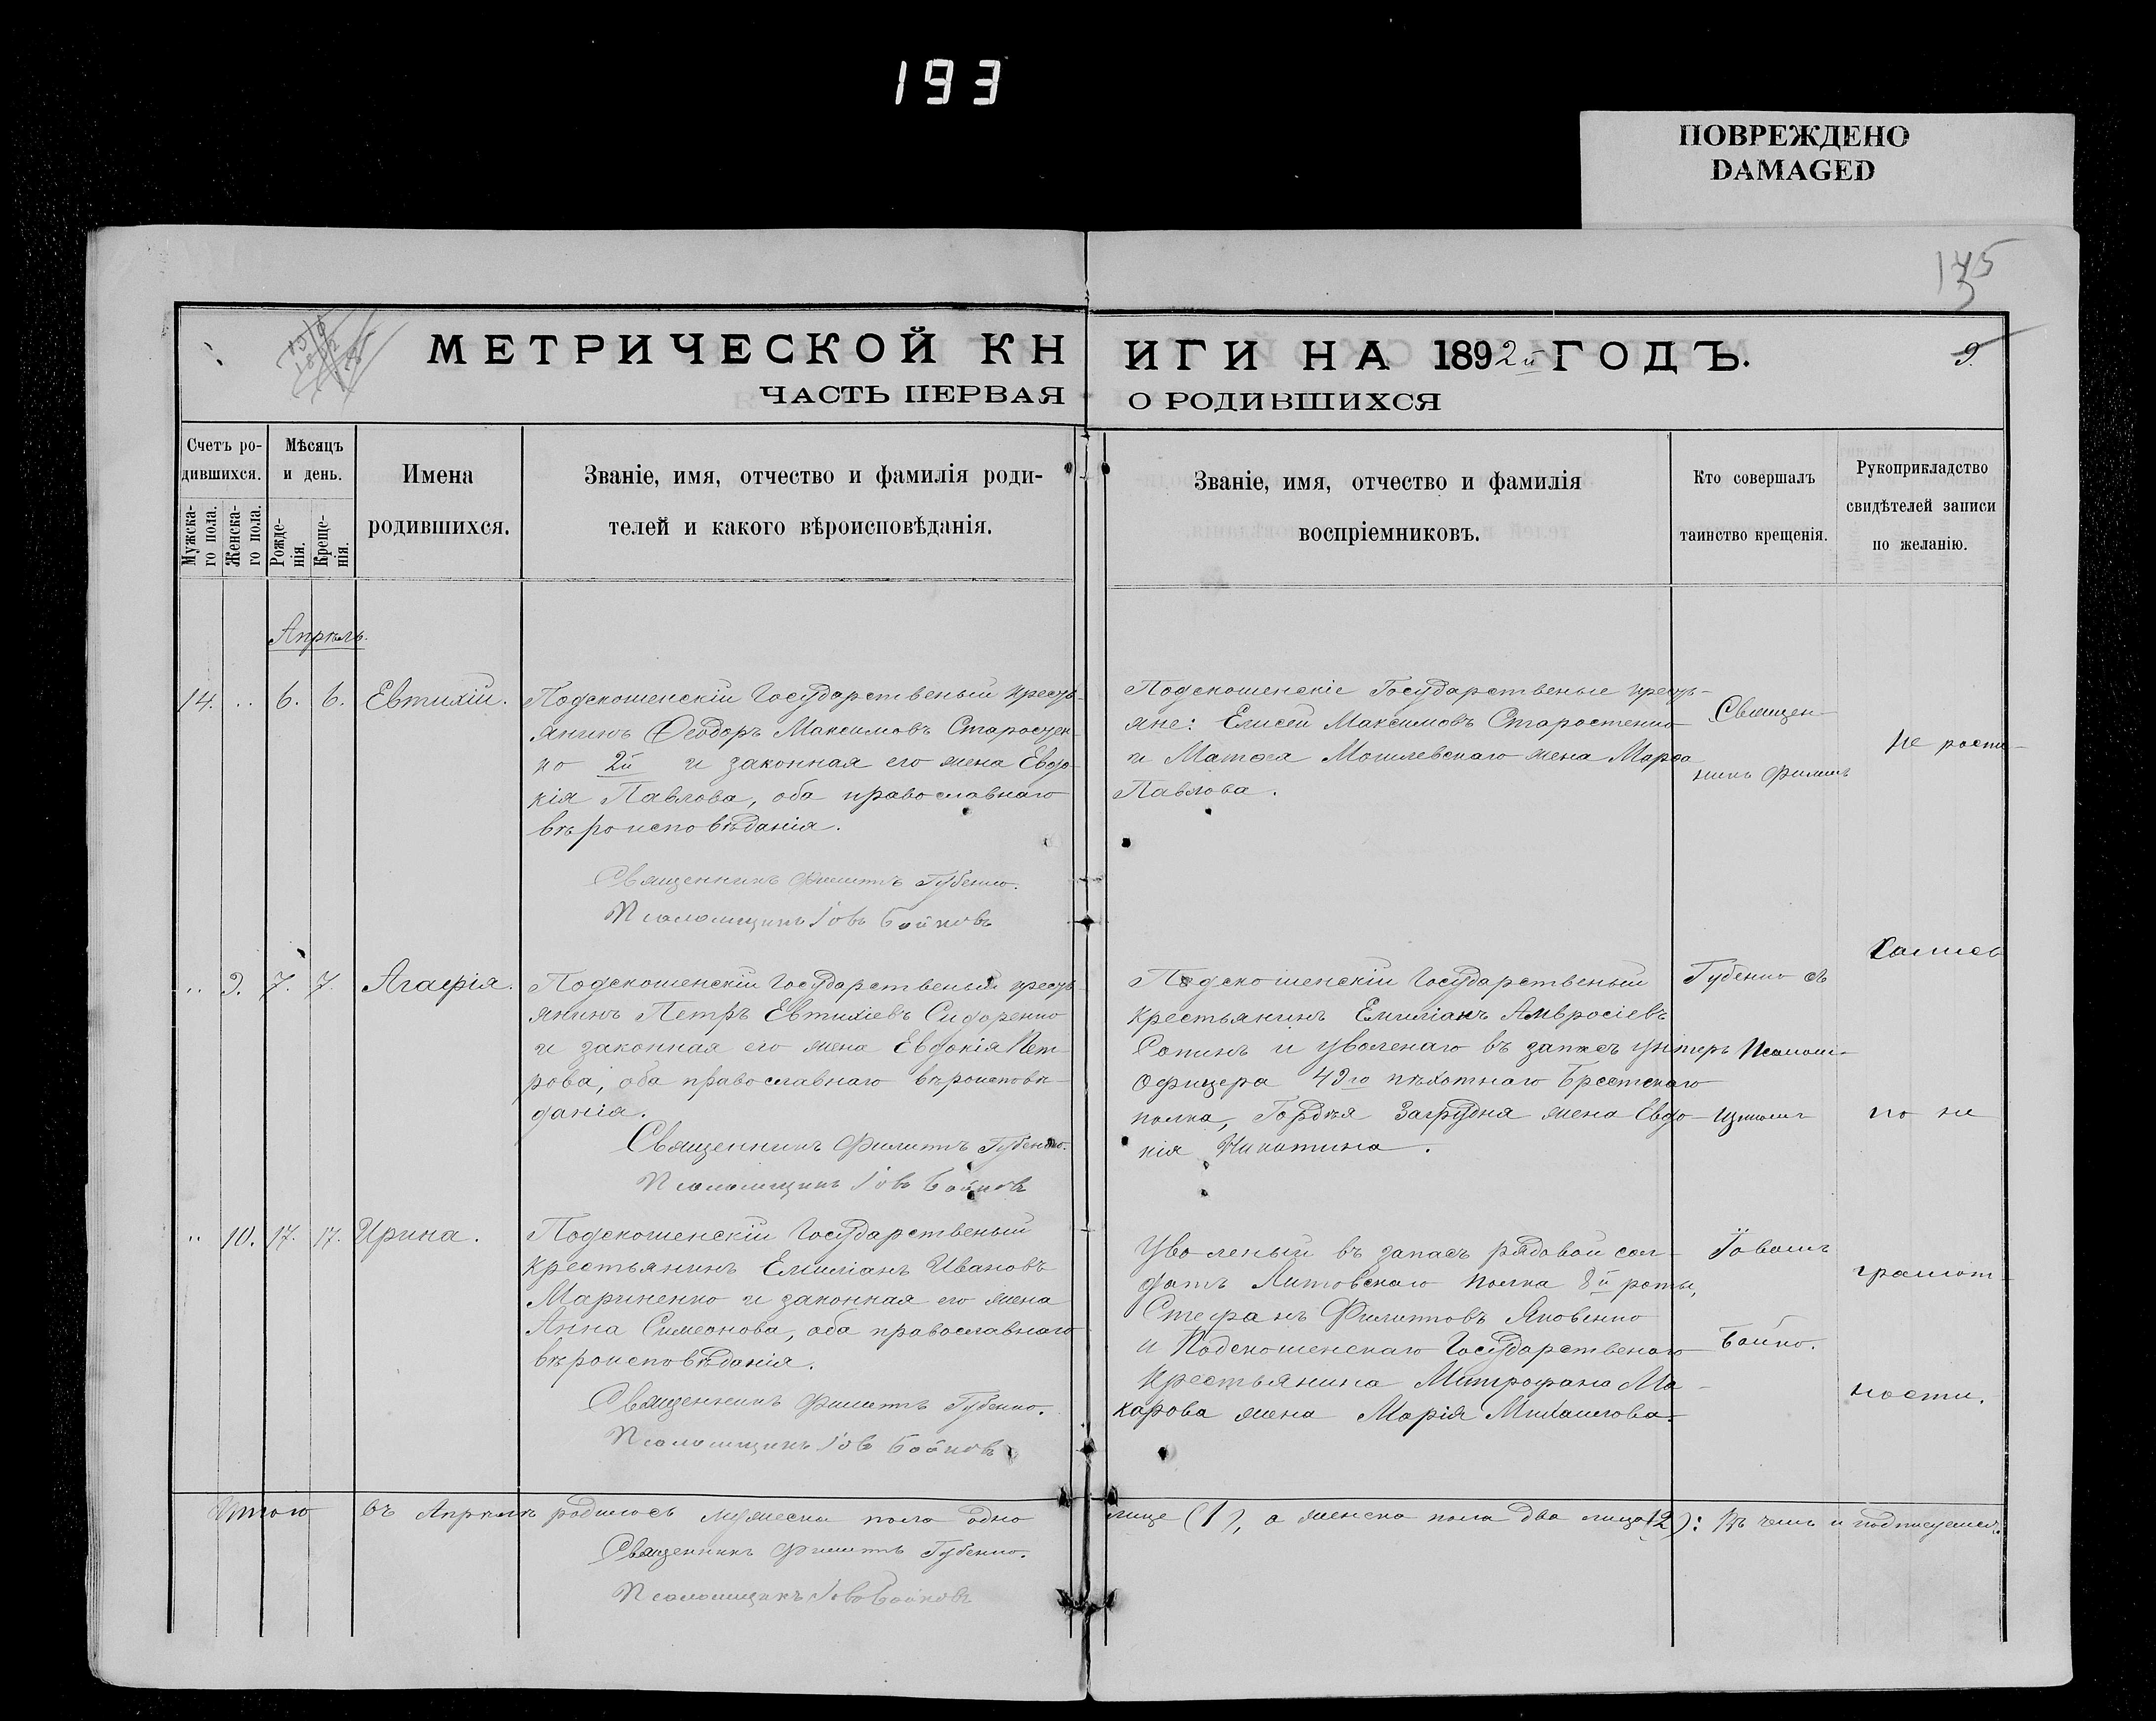 193
ПОВРЕЖДЕНО
DAMAGED
МЕТРИЧЕСКОЙ КНИГИ НА 1892й ГОДЪ.
9.
ЧАСТЬ ПЕРВАЯ О РОДИВШИХСЯ
Счетъ родившихся.
Мужскаго пола.
Женскаго пола.
Мѣсяцъ и день.
Рожденія.
Крещенія.
Имена
родившихся.
Званіе, имя, отчество и фамилія роди-
телей и какого вѣроисповѣданія.
Званіе, имя, отчество и фамилія
воспріемниковъ.
Кто совершалъ
таинство крещенія.
Рукоприкладство
свидѣтелей записи
по желанію.
Апрѣль.
14. .. 6. 6. Евтихій.
Подскошенскій Государственый кресть-
янинъ Ѳеодоръ Максимовъ Старостен-
ко 2й и законная его жена Евдо-
кія Павлова, оба православнаго
вѣроисповѣданія.
Священникъ Филиппъ Губенко.
Псаломщикъ Іовъ Бойковъ
Подскошенскіе Государственые кресть-
яне: Елисей Максимовъ Старостенко
и Матѳея Могилевскаго жена Марѳа
Павлова.
.. 9. 7. 7. Агафія.
Подскошенскій Государственый кресть-
янинъ Петръ Евтихіевъ Сидоренко
и законная его жена Евдокія Пет-
рова, оба православнаго вѣроисповѣ-
данія.
Священникъ Филиппъ Губенко.
Псаломщикъ Іовъ Бойковъ
Подскошенскій Государственый
крестьянинъ Емиліанъ Амвросіевъ
Сопинъ и уволенаго въ запасъ унтеръ
офицера 49го пѣхотнаго Брестскаго
полка, Гордѣя Загрудня жена Евдо-
кія Никитина.
.. 10. 17. 17. Ирина.
Подскошенскій Государственый
крестьянинъ Емиліанъ Ивановъ
Мариненко и законная его жена
Анна Симеонова, оба православнаго
вѣроисповѣданія.
Священникъ Филиппъ Губенко.
Псаломщикъ Іовъ Бойковъ
Уволеный въ запасъ рядовой сол-
датъ Литовскаго полка 8й роты,
Стефанъ Филипповъ Яковенко
и Подскошенскаго Государственаго
крестьянина Митрофана Ма-
карова жена Марія Михаилова.
Священ-
никъ Филиппъ
Губенко съ
Псалом-
щикомъ
Іовомъ
Бойко.
Не роспи-
сались
по не
грамот-
ности.
Итого въ Апрѣлѣ родилось мужеска пола одно лице (1), а женска пола два лица (2): Въ чемъ и подписуемся.
Священникъ Филиппъ Губенко.
Псаломщикъ Іовъ Бойковъ